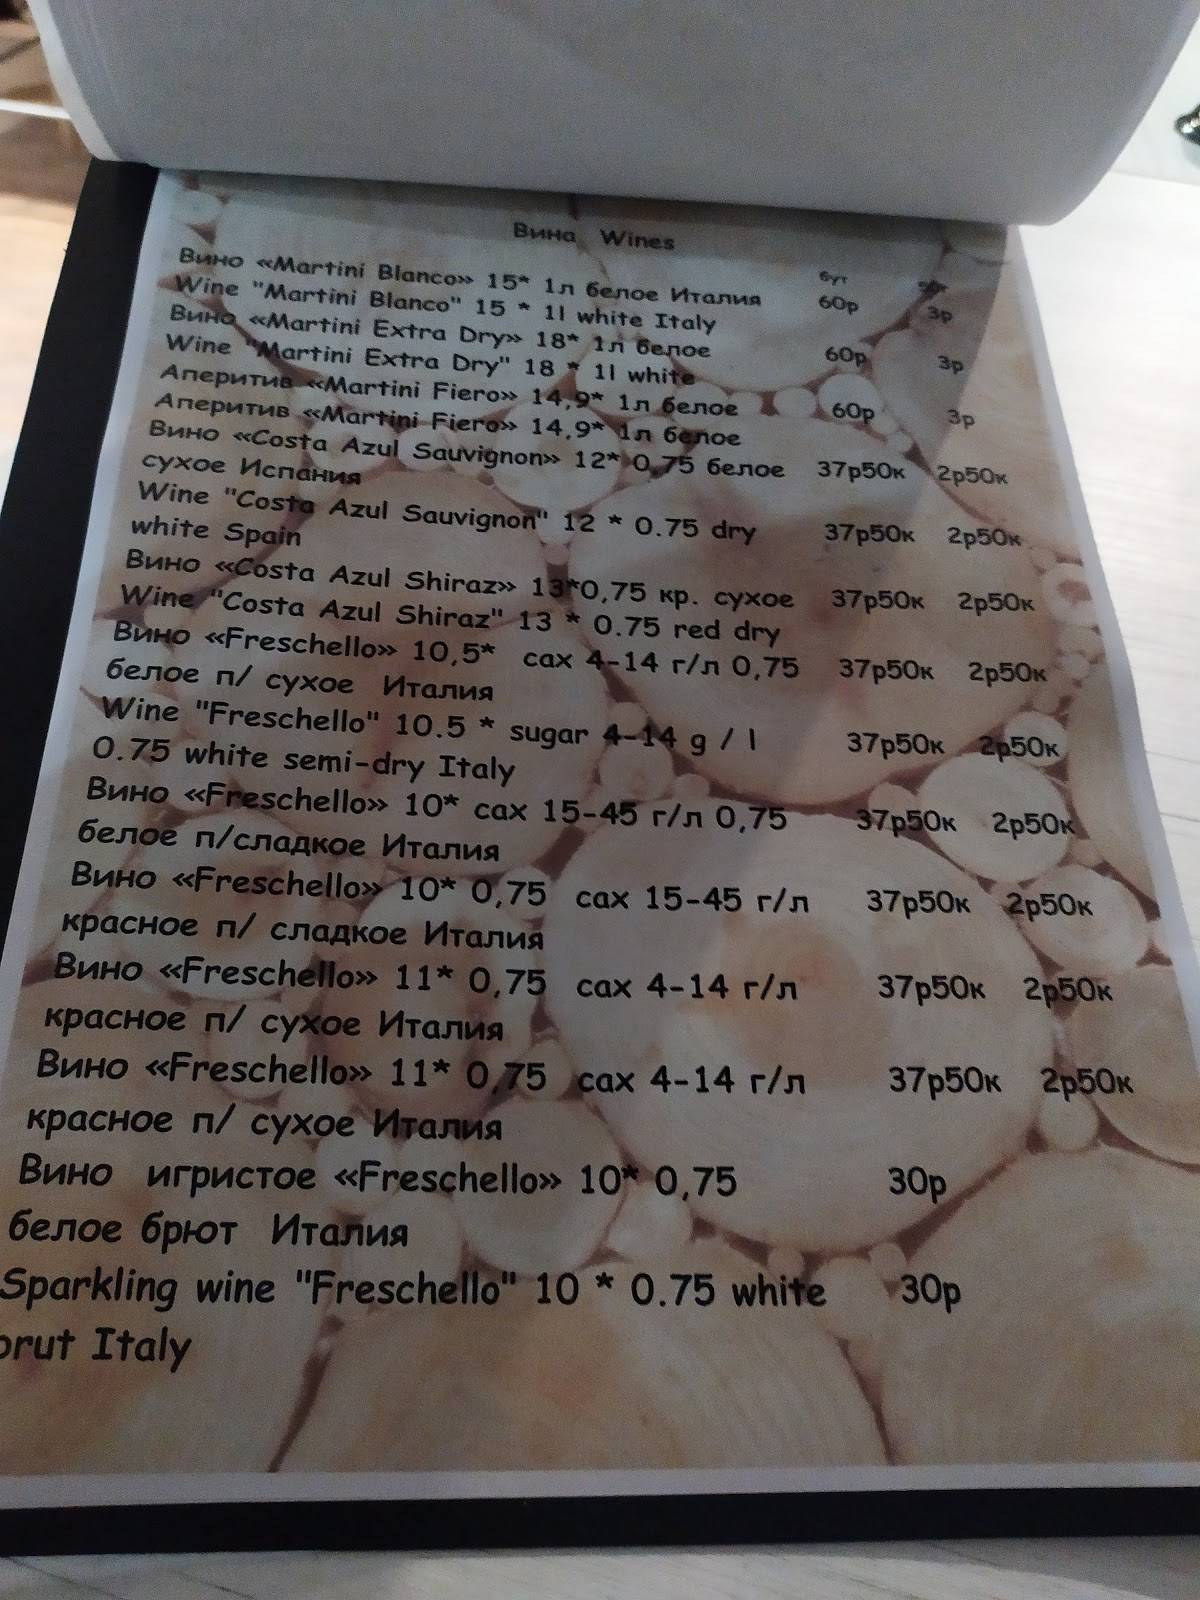 Вина Wines
бут 50г
Вино «Martini Blanco» 15* 1л белое Италия 60р 3р
Wine "Martini Blanco" 15 * 1l white Italy
Вино «Martini Extra Dry» 18* 1л белое 60р 3р
Wine "Martini Extra Dry" 18 * 1l white
Аперитив «Martini Fiero» 14,9* 1л белое 60р 3р
Аперитив «Martini Fiero» 14,9* 1л белое
Вино «Costa Azul Sauvignon» 12* 0,75 белое 37р50к 2р50к
сухое Испания
Wine "Costa Azul Sauvignon" 12 * 0.75 dry 37р50к 2р50к
white Spain
Вино «Costa Azul Shiraz» 13*0,75 кр. сухое 37р50к 2р50к
Wine "Costa Azul Shiraz" 13 * 0.75 red dry
Вино «Freschello» 10,5* сах 4-14 г/л 0,75 37р50к 2р50к
белое п/ сухое Италия
Wine "Freschello" 10.5 * sugar 4-14 g / l 37р50к 2р50к
0.75 white semi-dry Italy
Вино «Freschello» 10* сах 15-45 г/л 0,75 37р50к 2р50к
белое п/сладкое Италия
Вино «Freschello» 10* 0,75 сах 15-45 г/л 37р50к 2р50к
красное п/ сладкое Италия
Вино «Freschello» 11* 0,75 сах 4-14 г/л 37р50к 2р50к
красное п/ сухое Италия
Вино «Freschello» 11* 0,75 сах 4-14 г/л 37р50к 2р50к
красное п/ сухое Италия
Вино игристое «Freschello» 10* 0,75 30р
белое брют Италия
Sparkling wine "Freschello" 10 * 0.75 white 30р
brut Italy